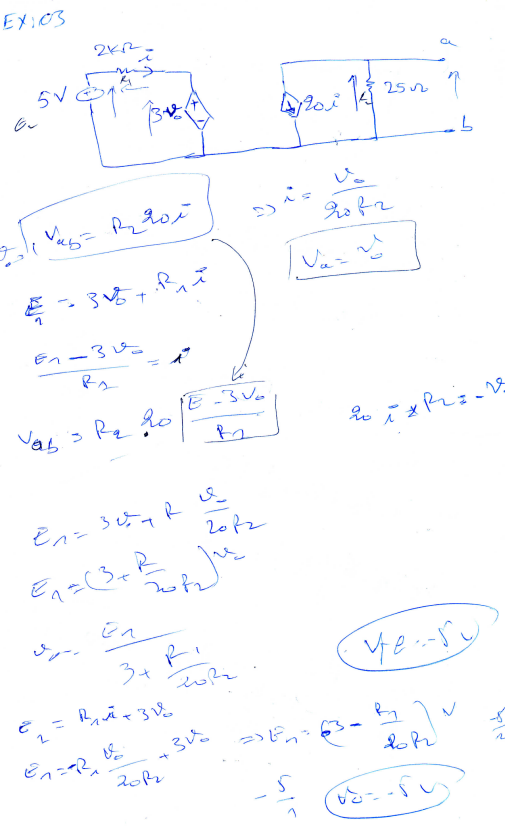 EX:03
2kΩ i
a
5V
3v₀
20i
25Ω
b
V_ab = R₂ 20 i
=> i = v₀ / 20R₂
V_a = v₀
E₁ = 3v₀ + R₁ i
E₁ - 3v₀ / R₁ = i
V_ab = R₂ . 20 E - 3v₀ / R₁
20 i * R₂ = -v₀
E₁ = 3v₀ + R v₀ / 20R₂
E₁ = (3 + R / 20R₂) v₀
v₀ = E₁ / 3 + R₁ / 20R₂
= -5V
E₁ = R₁ i + 3v₀
E₁ = -R₁ v₀ / 20R₂ + 3v₀ => E₁ = (3 - R₁ / 20R₂) V
-5 / 1
v₀ = -5V